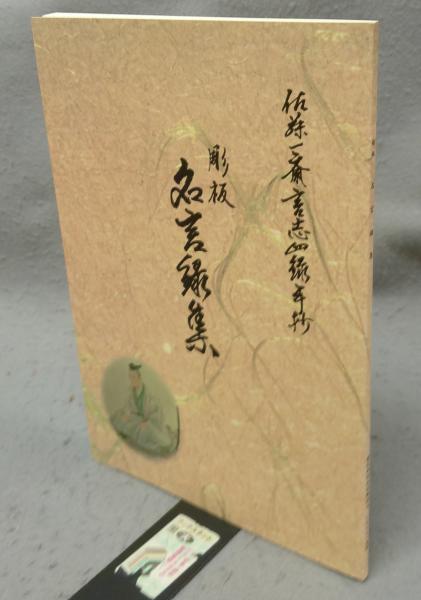 佐藤一斎言志四録手抄
彫板
名言録集